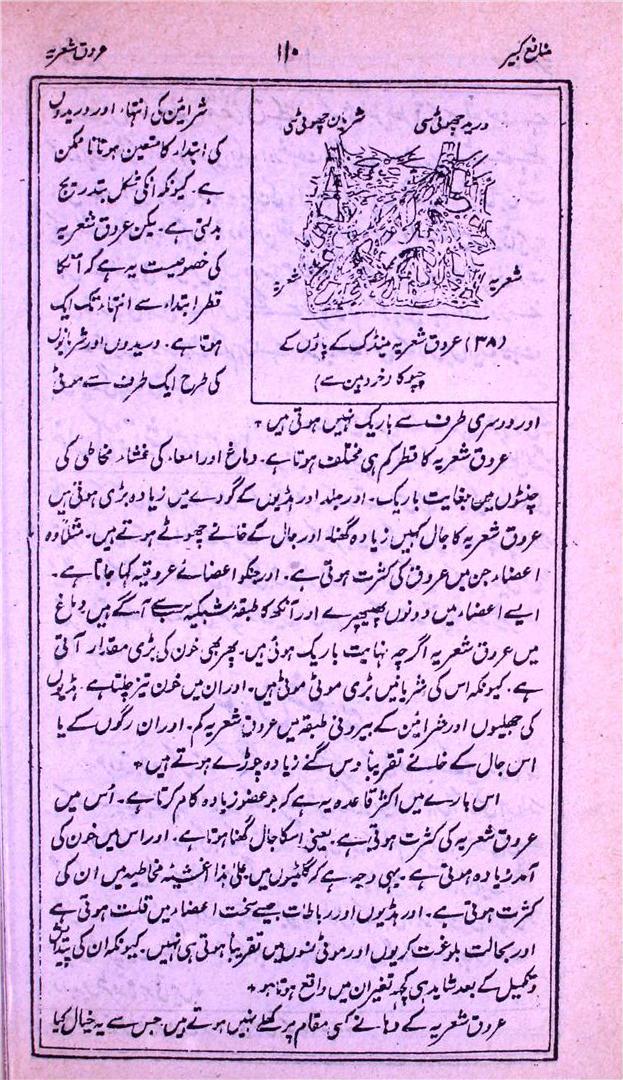 منافع کبیر
۱۱۰
عروق شعریہ
شرائین کی انتہاء اور وریدوں
کی ابتدار کا متعین ہونا نا ممکن
ہے۔ کیونکہ انکی شکل بتدریج
بدلتی ہے۔ لیکن عروق شعریہ
کی خصوصیت یہ ہے کہ انکا
قطر ابتداء سے انتہاء تک ایک
ہوتا ہے۔ وریدوں اور شریانوں
کی طرح ایک طرف سے موٹی
ورید چھوٹی سی
شریان چھوٹی سی
شعریہ
شعریہ
(۳۸) عروق شعریہ مینڈک کے پاؤں کے
چپو کا (خردبین سے)
اور دوسری طرف سے باریک نہیں ہوتی ہیں +
عروق شعریہ کا قطر کم ہی مختلف ہوتا ہے۔ دماغ اور امعاء کی غشاء مخاطی کی
چنٹوں میں بغایت باریک۔ اور جلد اور ہڈیوں کے گودے میں زیادہ بڑی ہوتی ہیں
عروق شعریہ کا جال کہیں زیادہ گھنا اور جال کے خانے چھوٹے ہوتے ہیں۔ مثلاً وہ
اعضاء جن میں عروق کی کثرت ہوتی ہے۔ اور جنکو اعضائے عروقیہ کہا جاتا ہے۔
ایسے اعضاء میں دونوں پھیپھڑے اور آنکھ کا طبقہ شبکیہ سب سے آگے ہیں دماغ
میں عروق شعریہ اگرچہ نہایت باریک ہوتی ہیں۔ پھر بھی خون کی بڑی مقدار آتی
ہے۔ کیونکہ اس کی شریانیں بڑی موٹی موٹی ہیں۔ اور ان میں خون تیز چلتا ہے۔ ہڈیوں
کی جھلیوں اور شرائین کے بیرونی طبقہ میں عروق شعریہ کم۔ اور ان رگوں کے یا
اس جال کے خانے تقریباً دس گنے زیادہ چوڑے ہوتے ہیں +
اس بارے میں اکثر قاعدہ یہ ہے کہ جو عضو زیادہ کام کرتا ہے۔ اس میں
عروق شعریہ کی کثرت ہوتی ہے۔ یعنی اسکا جال گھنا ہوتا ہے۔ اور اس میں خون کی
آمد زیادہ ہوتی ہے۔ یہی وجہ ہے کہ گلٹیوں میں علیٰ ہذا اغشیۂ مخاطیہ میں ان کی
کثرت ہوتی ہے۔ اور ہڈیوں اور رباطات جیسے سخت اعضاء میں قلت ہوتی ہے
اور بحالت بلوغت کریوں اور موٹی نسوں میں تقریباً ہوتی ہی نہیں۔ کیونکہ ان کی پیدایش
و تکمیل کے بعد شاید ہی کچھ تغیر ان میں واقع ہوتا ہو +
عروق شعریہ کے دہانے کسی مقام پر کھلے نہیں ہوتے ہیں جس سے یہ خیال کیا